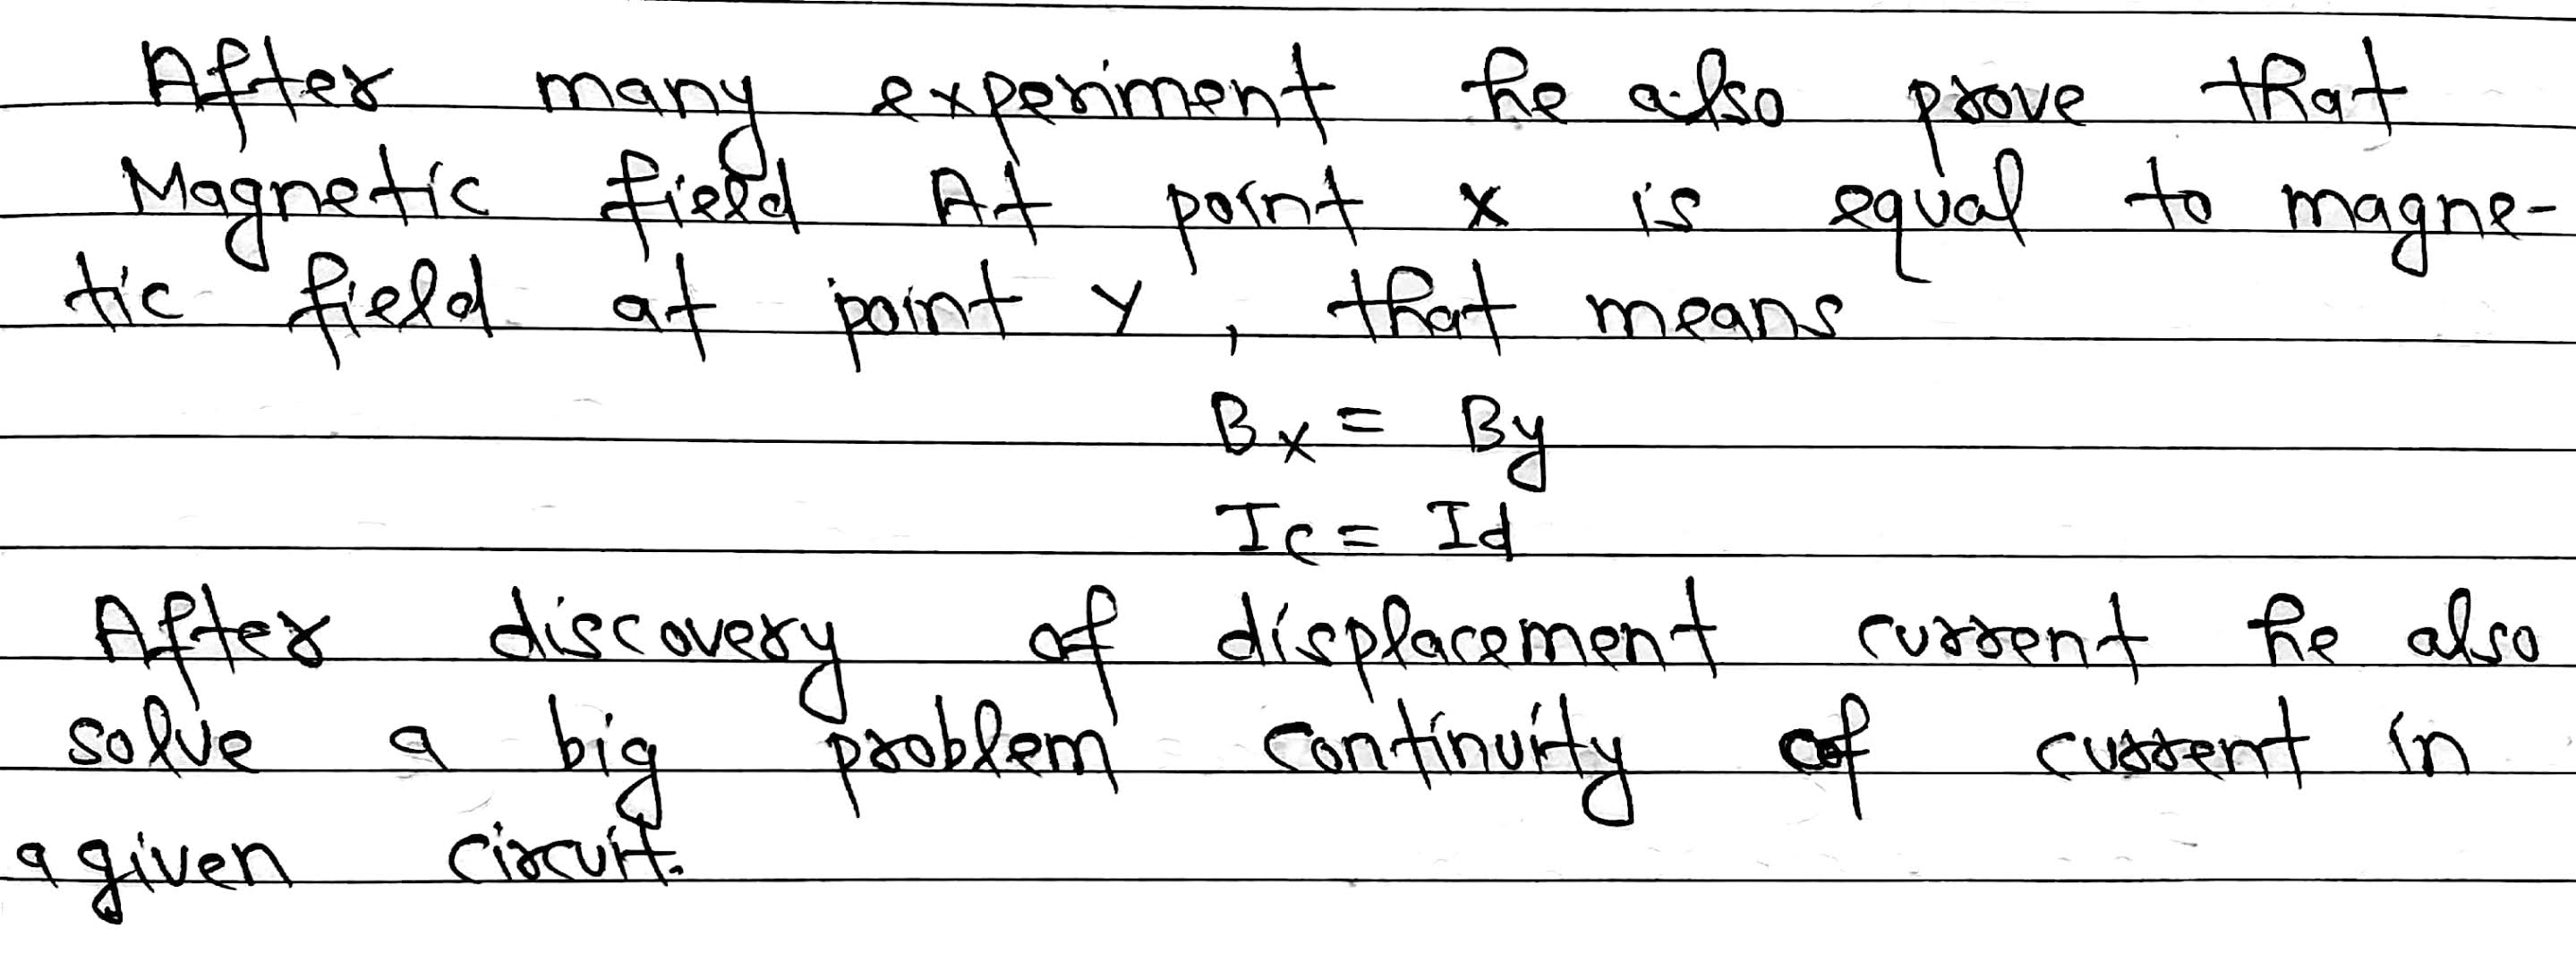 After many experiment he also prove that
Magnetic field At point x is equal to magne-
tic field at point y, that means
Bx = By
Ic = Id
After discovery of displacement current he also
solve a big problem continuity of current in
a given circuit.